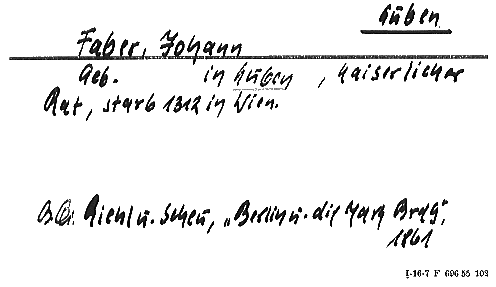 Guben
Faber, Johann
Geb. in Guben, Kaiserlicher
Rat, starb 1312 in Wien.
Riehl u. Scheu, „Berlin u. die Mark Brdg",
1861
I-16-7 F 696 55 103